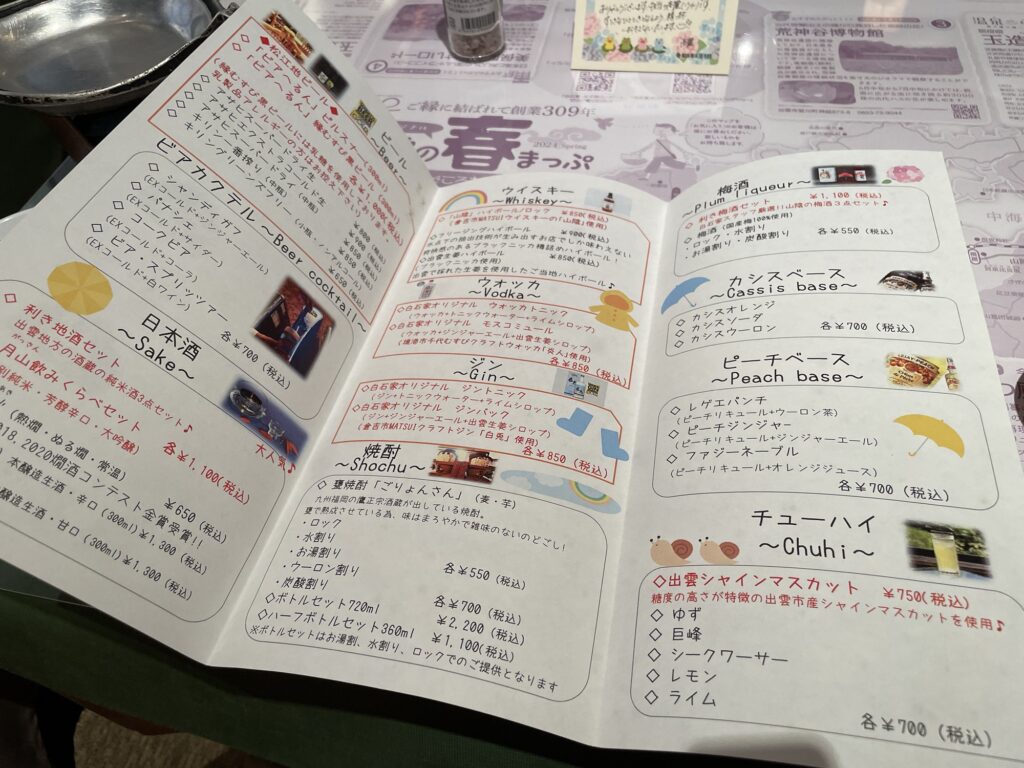 ビール
～Beer～
◆松江地ビール◆
「ビアへるん」ピルスナー(300ml)
「ビアへるん」縁むすび黒ビール(300ml)
縁むすび黒ビールには乳糖を使用しております。
乳製品アレルギーの方はお控え下さい。
◇アサヒスーパードライ生
◇アサヒスーパードライ(中瓶)
◇キリン一番搾り(中瓶)
◇キリングリーンズフリー(小瓶・ノンアルコール)
ビアカクテル～Beer cocktail～
◇シャンディガフ
(EXコールド+ジンジャーエール)
◇パナシェ
(EXコールド+サイダー)
◇コークビア
(EXコールド+コーラ)
◇ビア・スプリッツァー
(EXコールド+白ワイン)
各¥700(税込)
日本酒
～Sake～
◇利き地酒セット
出雲地方の酒蔵の純米酒3点セット♪
月山飲みくらべセット
別純米・芳醇辛口・大吟醸)
各¥1,100(税込)
大人気♪
(熱燗・ぬる燗・常温)
¥650(税込)
18,2020燗酒コンテスト金賞受賞!!
本醸造生酒・辛口(300ml)¥1,300(税込)
醸造生酒・甘口(300ml)¥1,300(税込)
ウイスキー
～Whiskey～
◇「山陰」ハイボール/ロック ¥850(税込)
(倉吉市MATSUIウイスキーの「山陰」使用)
◇フリージングハイボール ¥900(税込)
氷点下の抽出技術が生み出すお店でしか味わえない
特徴感のあるブラックニッカ樽詰めハイボール!
◇出雲生姜ハイボール ¥850(税込)
(ブラックニッカ使用)
出雲で採れた生姜を使用したご当地ハイボール♪
ウオッカ
～Vodka～
◇白石家オリジナル ウォッカトニック
(ウォッカ+トニックウォーター+ライムシロップ)
◇白石家オリジナル モスコミュール
(ウォッカ+ジンジャーエール+出雲生姜シロップ)
(境港市千代むすびクラフトウォッカ「炎人」使用)
各¥850(税込)
ジン
～Gin～
◇白石家オリジナル ジントニック
(ジン+トニックウォーター+ライムシロップ)
◇白石家オリジナル ジンバック
(ジン+ジンジャーエール+出雲生姜シロップ)
(倉吉市MATSUIクラフトジン「白兎」使用)
各¥850(税込)
焼酎
～Shochu～
◇甕焼酎「ごりょんさん」(麦・芋)
九州福岡の鷹正宗酒蔵が出している焼酎。
甕で熟成させている為、味はまろやかで雑味のないのどごし!
・ロック
・水割り
・お湯割り
・ウーロン割り 各¥550(税込)
・炭酸割り
各¥700(税込)
◇ボトルセット720ml ¥2,200(税込)
◇ハーフボトルセット360ml ¥1,100(税込)
※ボトルセットはお湯割、水割り、ロックでのご提供となります
梅酒
～Plum liqueur～
◇利き梅酒セット ¥1,100(税込)
白石家スタッフ厳選!山陰の梅酒3点セット♪
◇梅酒(国産梅100%使用)
・ロック・水割り 各¥550(税込)
・お湯割り・炭酸割り
カシスベース
～Cassis base～
◇カシスオレンジ
◇カシスソーダ
◇カシスウーロン 各¥700(税込)
ピーチベース
～Peach base～
◇レゲエパンチ
(ピーチリキュール+ウーロン茶)
◇ピーチジンジャー
(ピーチリキュール+ジンジャーエール)
◇ファジーネーブル
(ピーチリキュール+オレンジジュース)
各¥700(税込)
チューハイ
～Chuhi～
◇出雲シャインマスカット ¥750(税込)
糖度の高さが特徴の出雲市産シャインマスカットを使用♪
◇ゆず
◇巨峰
◇シークワーサー
◇レモン
◇ライム
各¥700(税込)
ご縁に結ばれて創業309年
2024 Spring
の春まっぷ
荒神谷博物館
温泉
玉造
中海